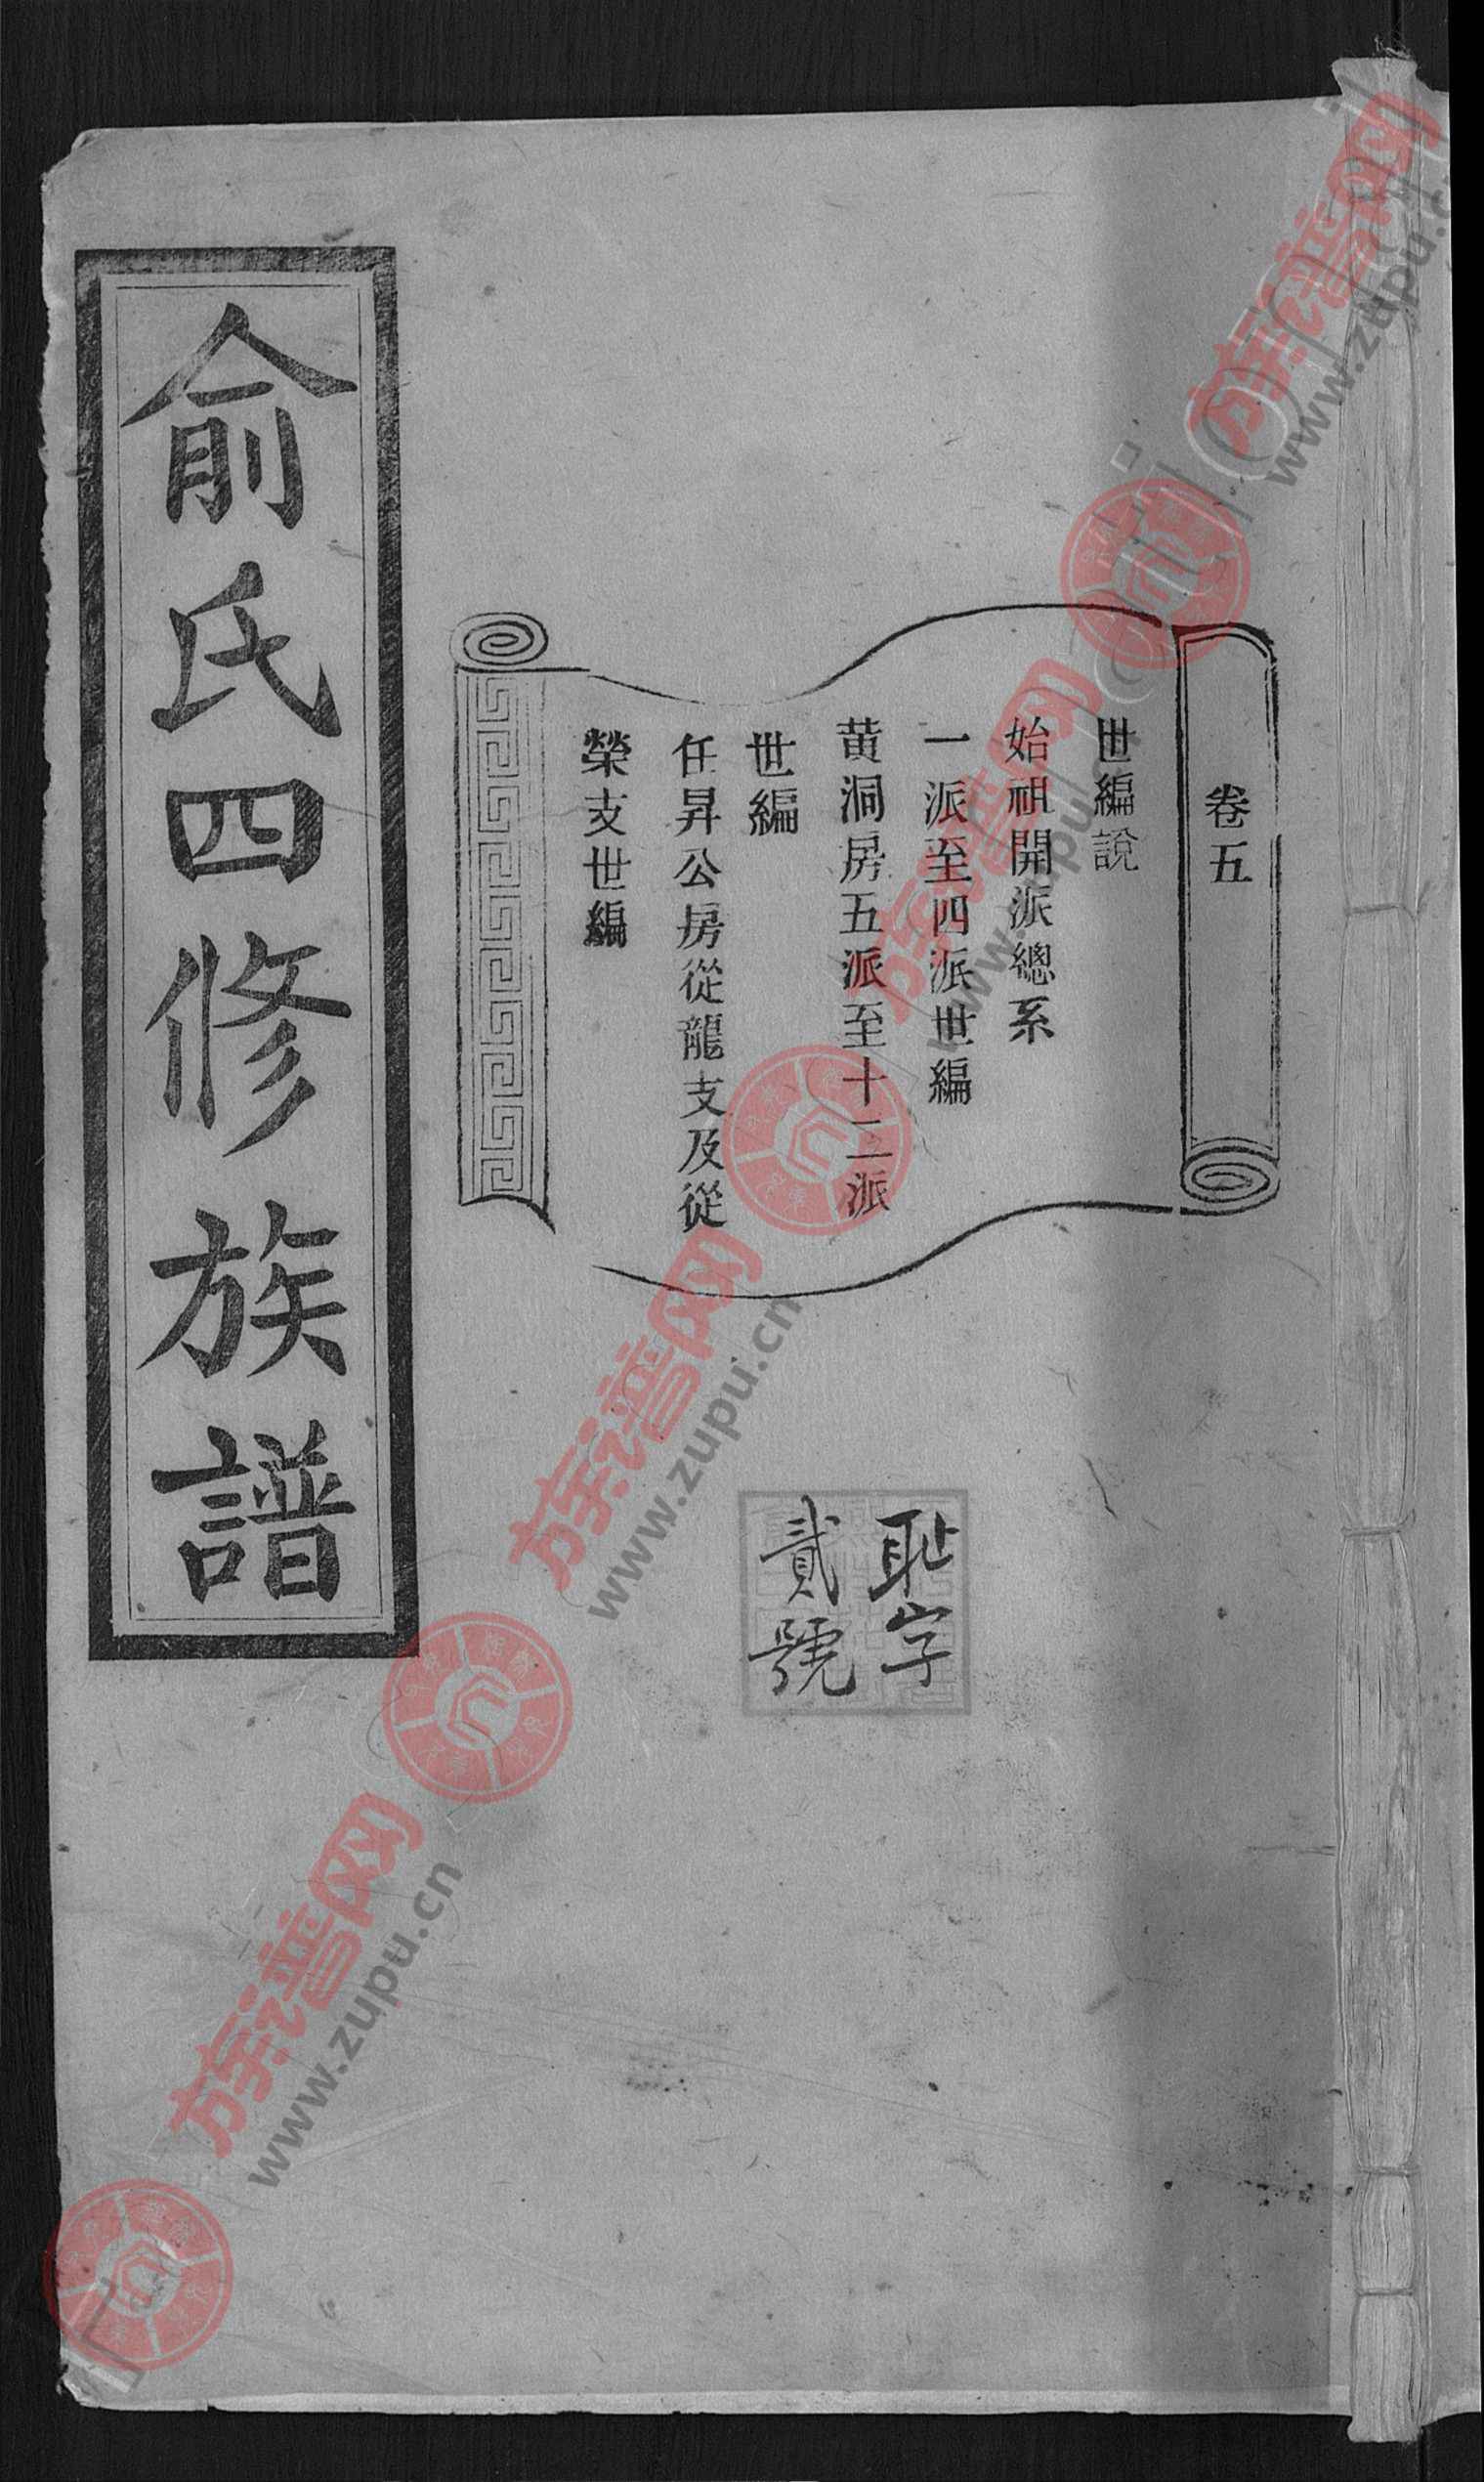 俞氏四修族譜
卷五
世編說
始祖開派總系
一派至四派世編
黄洞房五派至十二派
世編
任昇公房從龍支及從
榮支世編
恥字
貳號
族谱网
www.zupu.cn
族谱网
www.zupu.cn
族谱网
www.zupu.cn
族谱网
www.zupu.cn